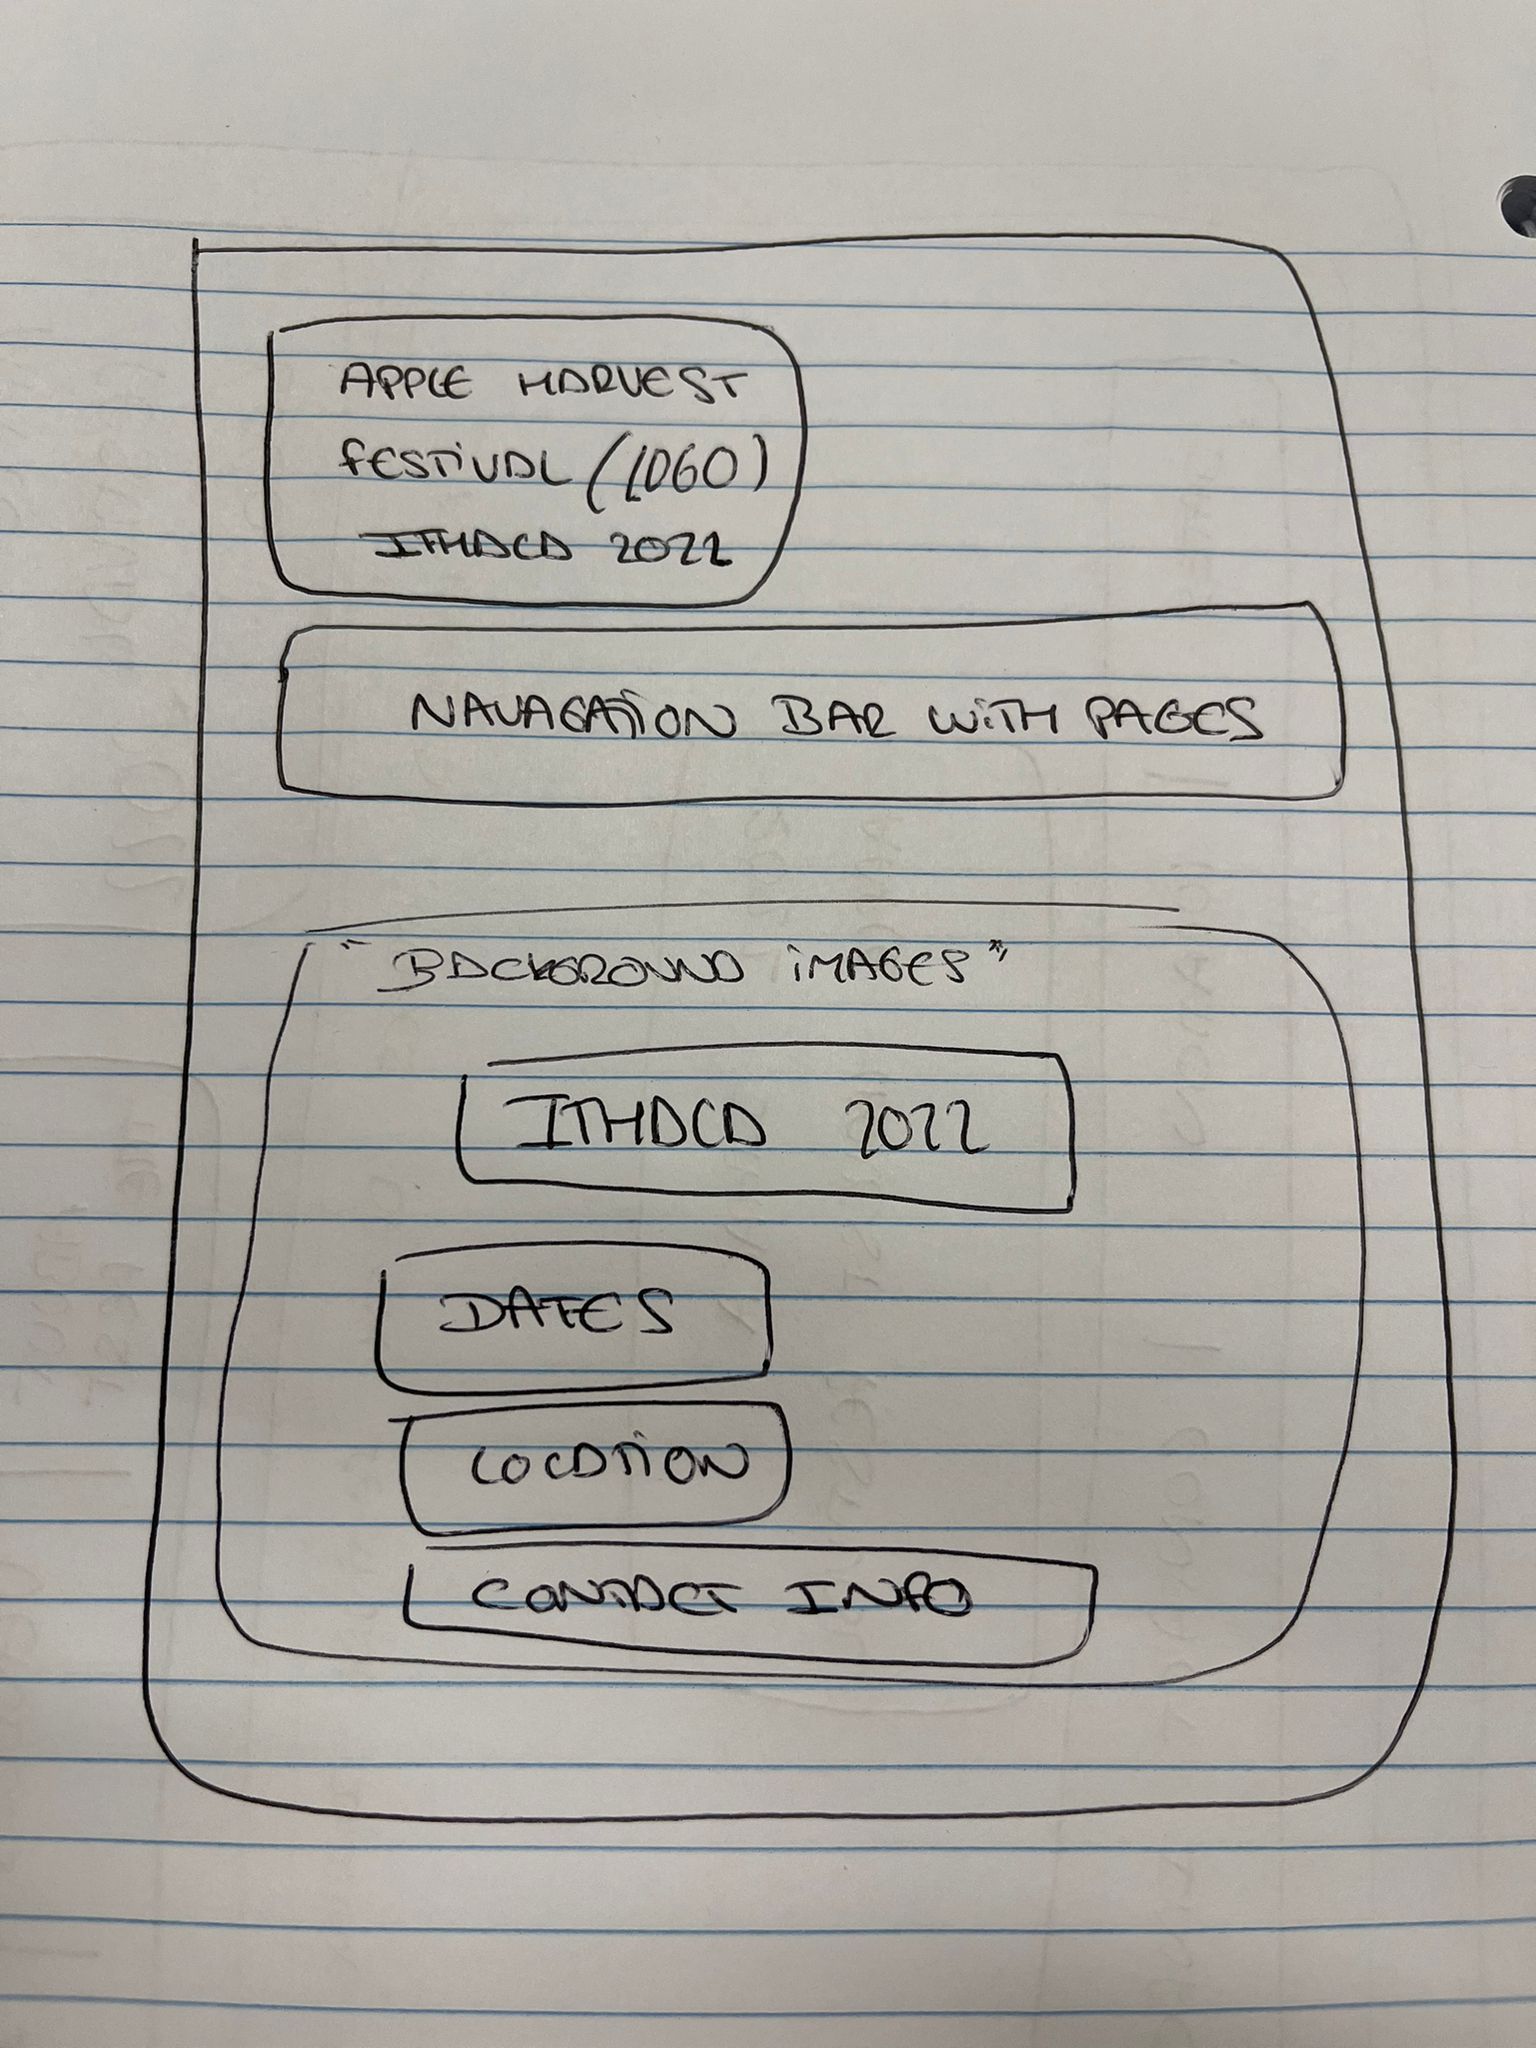 APPLE HARVEST
FESTIVAL (LOGO)
ITHACA 2022
NAVAGATION BAR WITH PAGES
"BACKGROUND IMAGES"
ITHACA 2022
DATES
LOCATION
CONTACT INFO